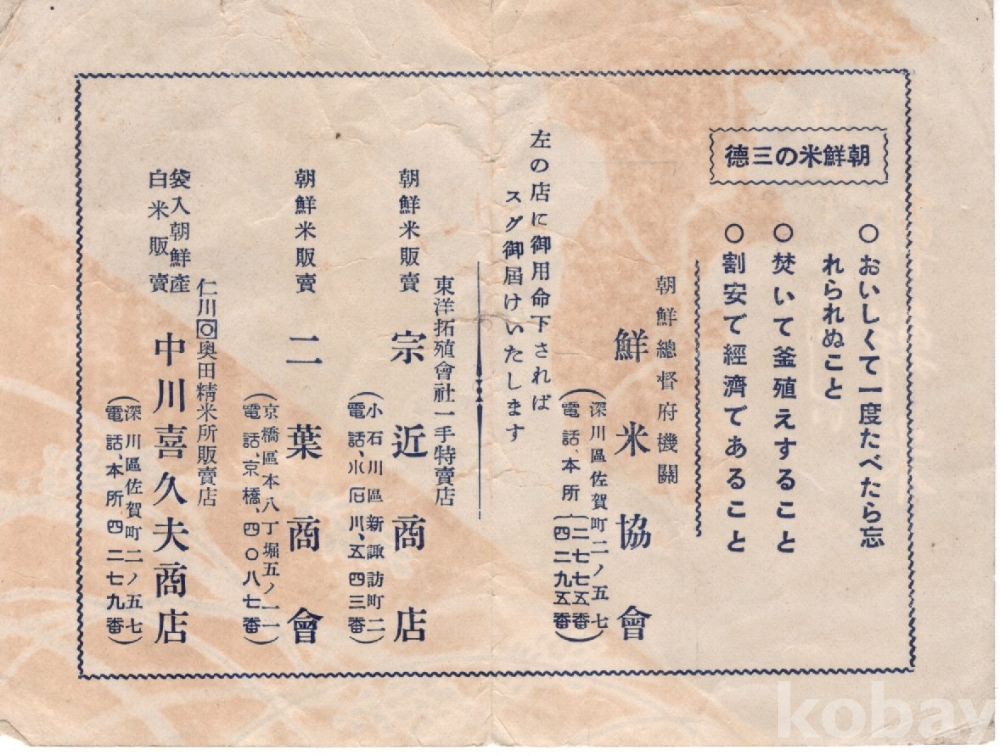 朝鮮米の三德
○おいしくて一度たべたら忘
れられぬこと
○焚いて釜殖えすること
○割安で經濟であること
朝鮮總督府機關
鮮米協會
(深川區佐賀町二ノ五七
電話、本所(二七七五番 四二九五番)
左の店に御用命下されば
スグ御屆けいたします
東洋拓殖會社一手特賣店
朝鮮米販賣 宗近商店
(小石川區新諏訪町二
電話、小石川、五四三番)
朝鮮米販賣 二葉商會
(京橋區本八丁堀五ノ一一
電話、京橋、四〇八七番)
仁川回奥田精米所販賣店
袋入朝鮮產
白米販賣 中川喜久夫商店
(深川區佐賀町二ノ五七
電話、本所四二七九番)
kobay